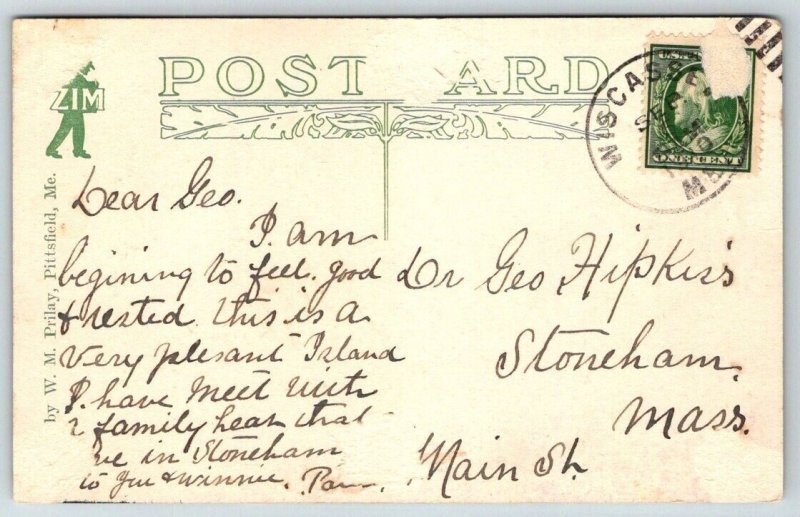 POST ARD
ZIM
by W. M. Prilay, Pittsfield, Me.
WISCASSE
SEP
ME
ONE CENT
Dear Geo.
I am
begining to feel. good
& rested this is a
very plesant Island
I. have meet with
2 family hear that
ve in Stoneham
to you & Winnie.
Dr Geo Hipkiss
Stoneham.
Mass.
Main St.